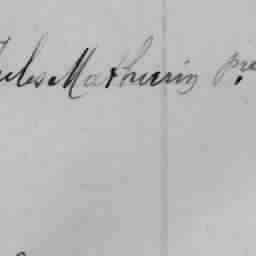 Jules Mathurin Pre